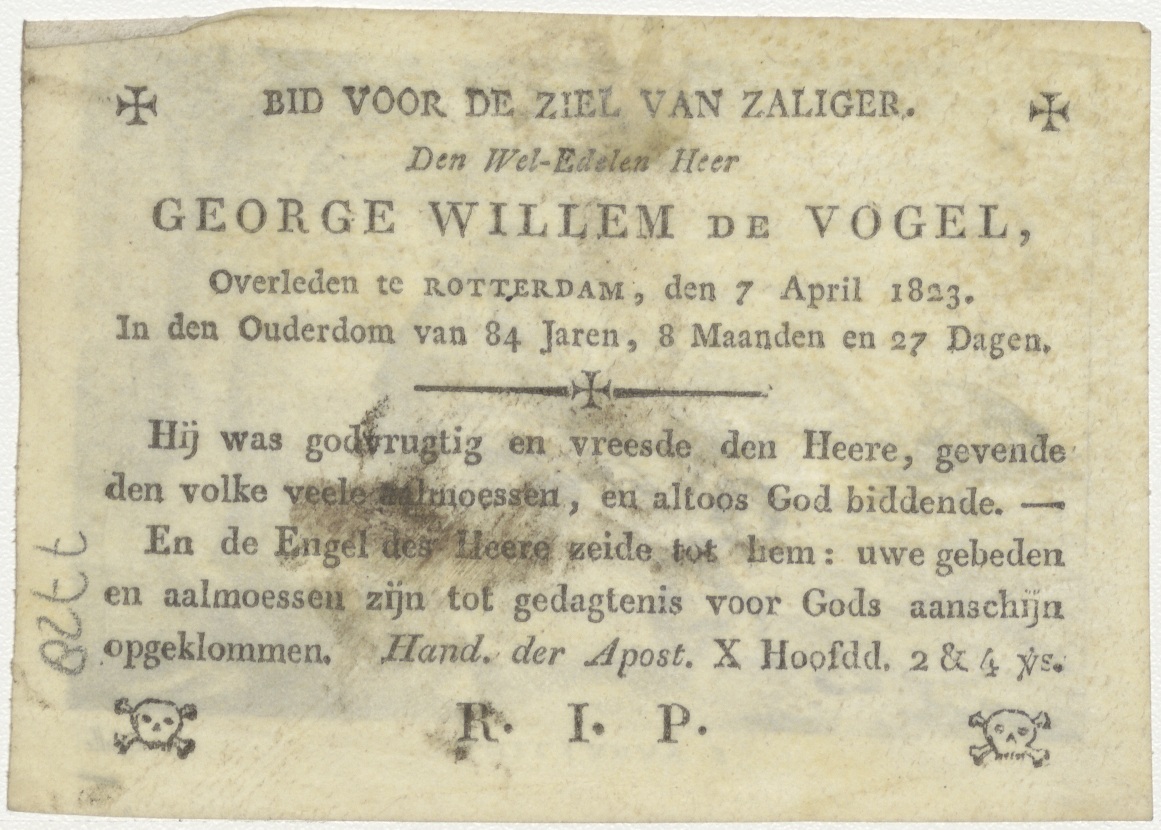 ✠ BID VOOR DE ZIEL VAN ZALIGER. ✠
Den Wel-Edelen Heer
GEORGE WILLEM DE VOGEL,
Overleden te ROTTERDAM, den 7 April 1823.
In den Ouderdom van 84 Jaren, 8 Maanden en 27 Dagen.
Hij was godvrugtig en vreesde den Heere, gevende
den volke veele aalmoessen, en altoos God biddende. —
En de Engel des Heere zeide tot hem: uwe gebeden
en aalmoessen zijn tot gedagtenis voor Gods aanschijn
opgeklommen. Hand. der Apost. X Hoofdd. 2 & 4 ℣s.
R. I. P.